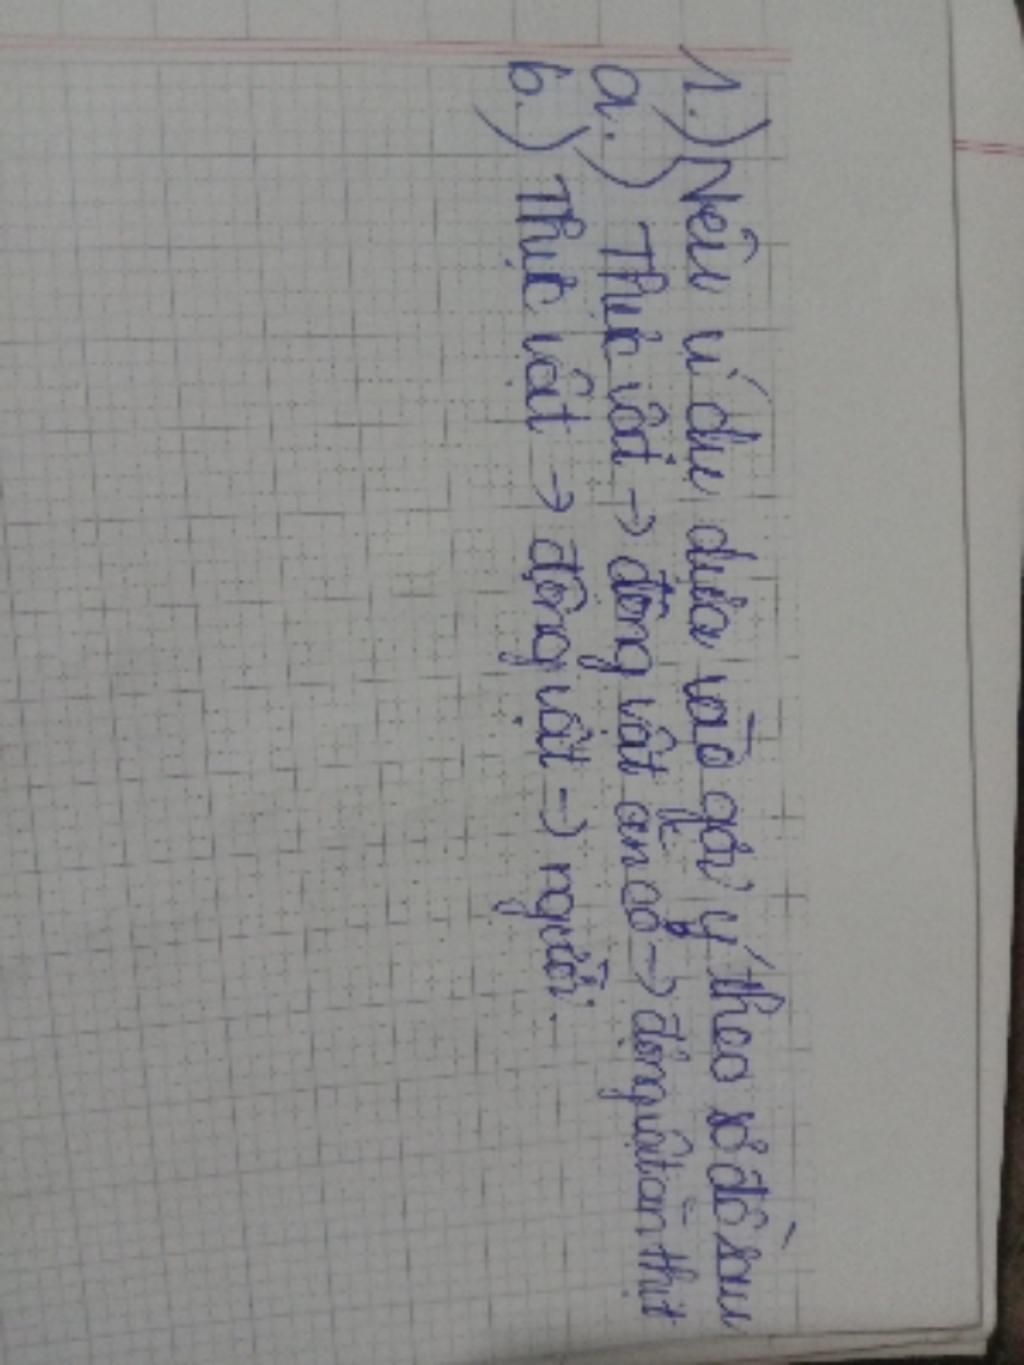 1.) Nêu ví dụ dựa vào gợi ý theo sơ đồ sau
a.) Thực vật → động vật ăn cỏ → động vật ăn thịt
b.) Thực vật → động vật → người.